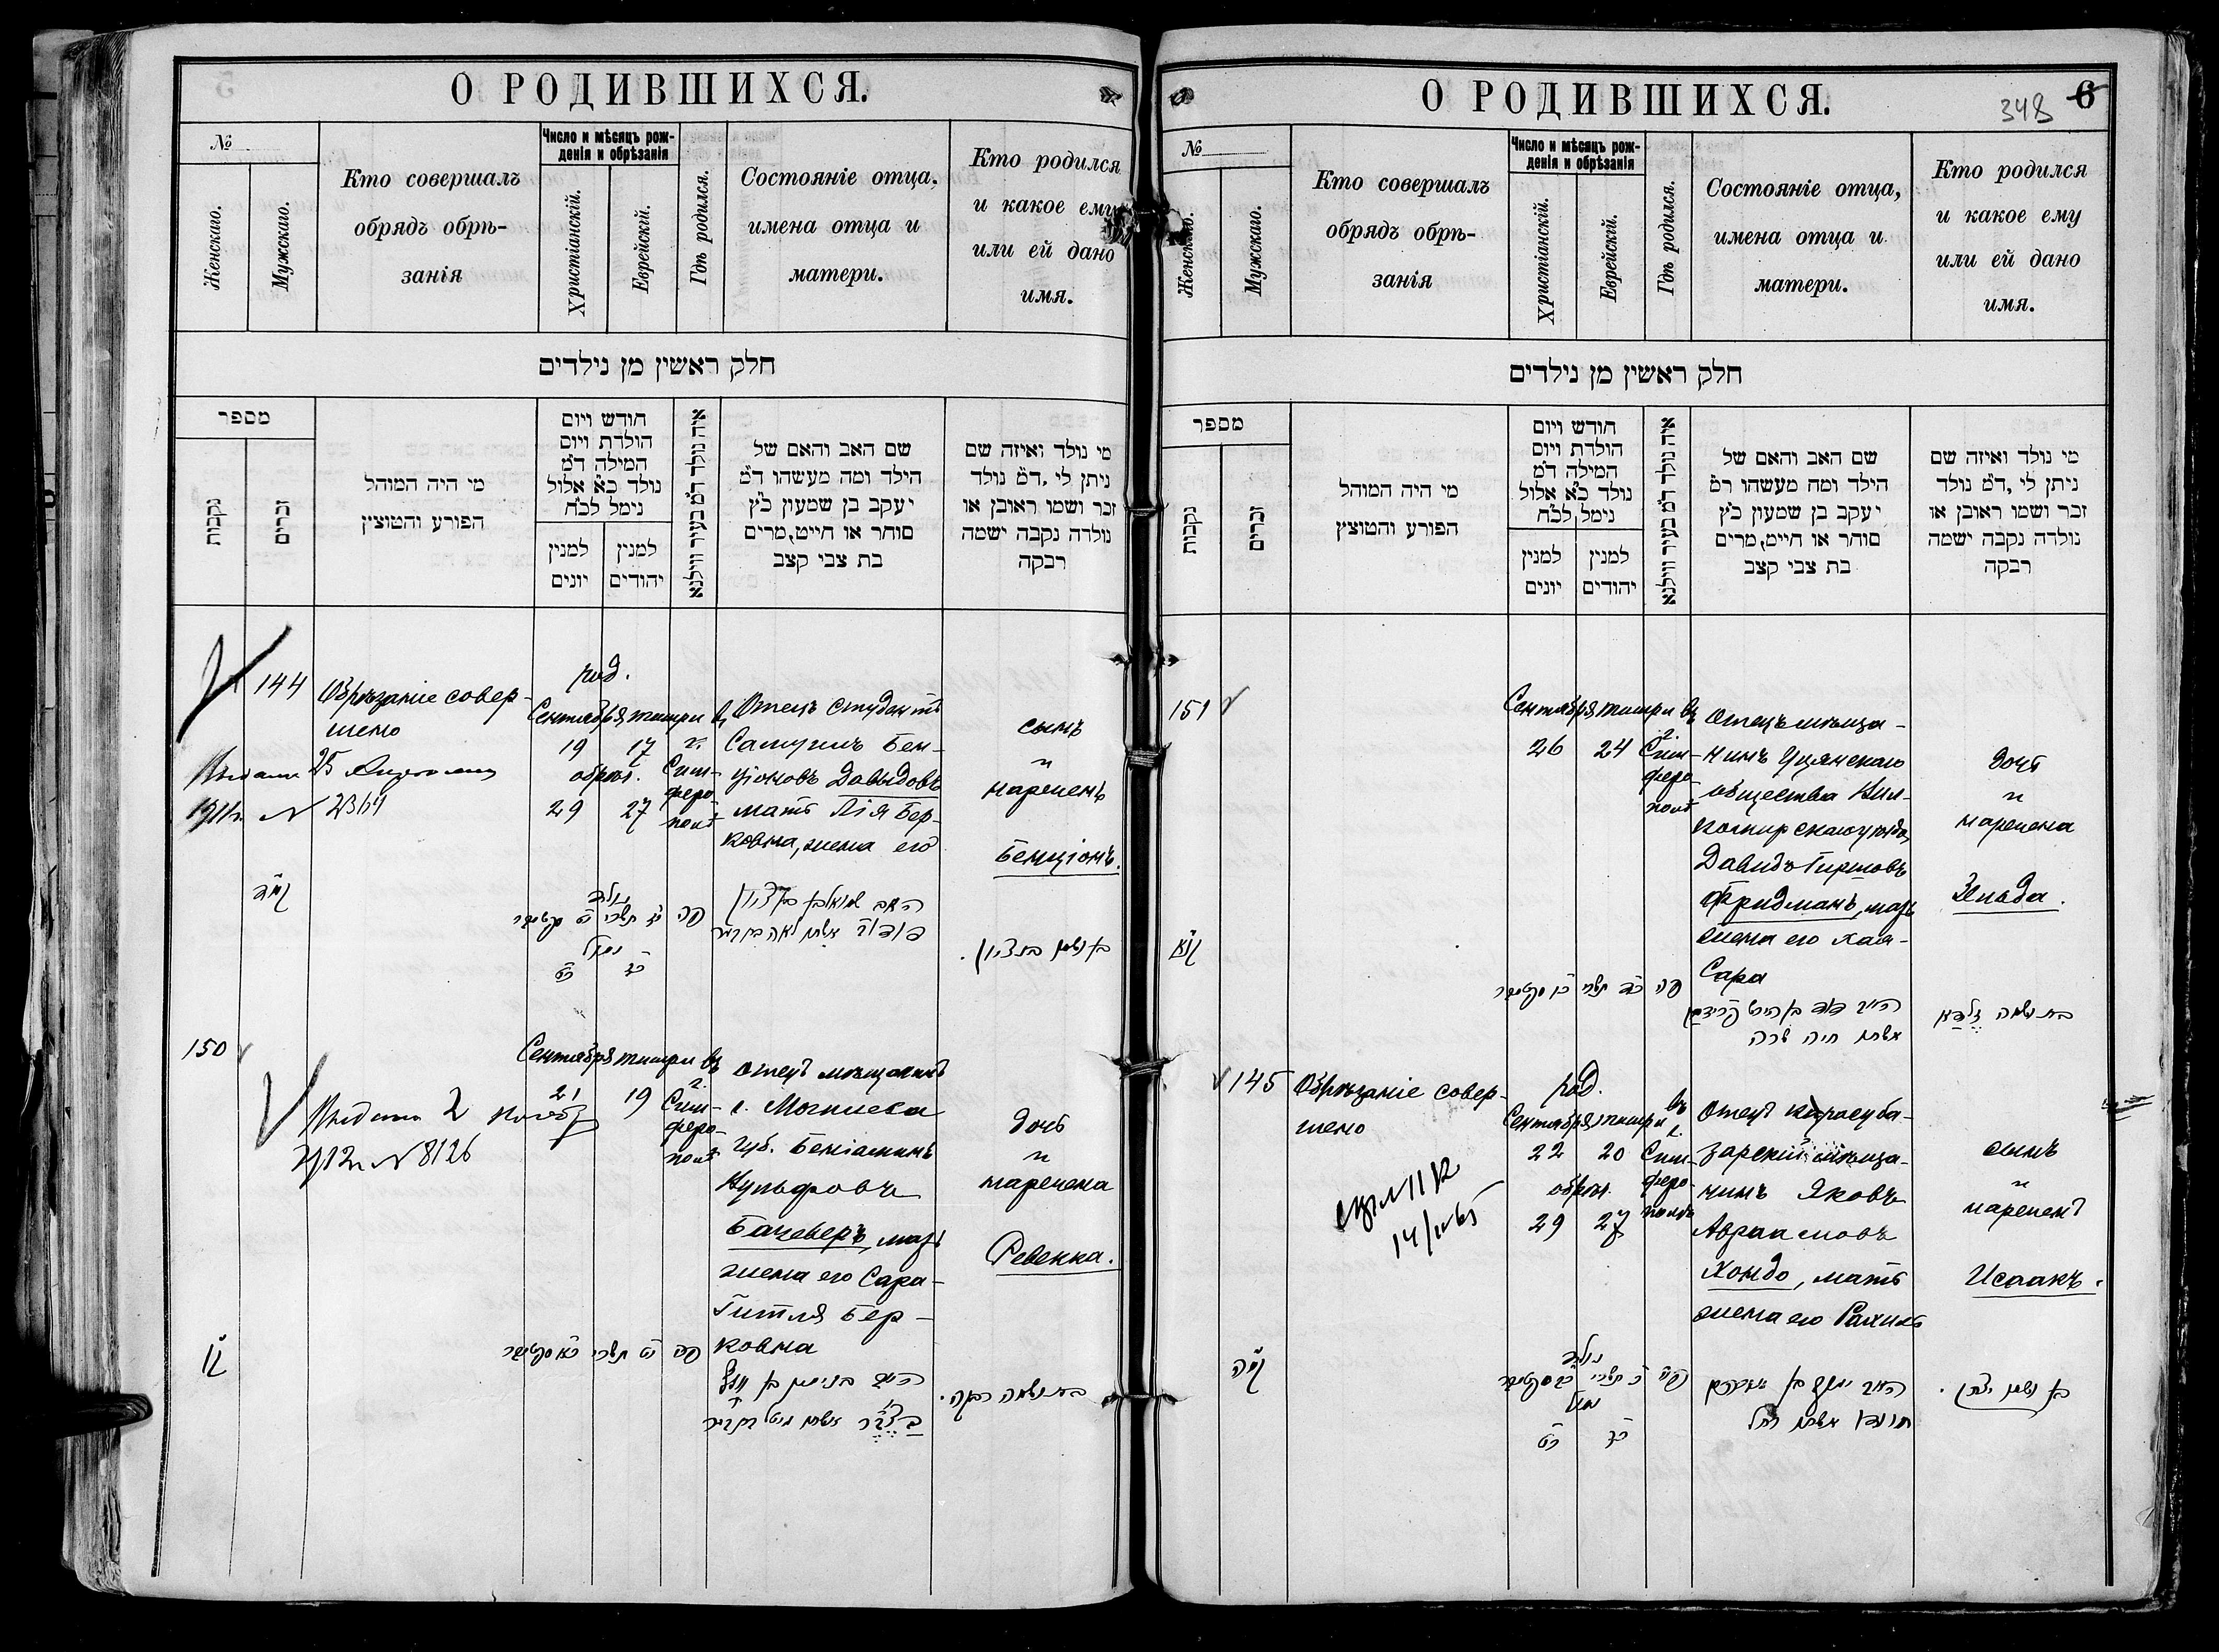 О РОДИВШИХСЯ.
№
Женскаго.
Мужскаго.
Кто совершалъ
обрядъ обрѣ-
занія
Число и мѣсяцъ рож-
денія и обрѣзанія
Христіанскій.
Еврейскій.
Гдѣ родился.
Состояніе отца,
имена отца и
матери.
Кто родился
и какое ему
или ей дано
имя.
חלק ראשין מן נילדים
מספר
נקבות
זכרים
מי היה המוהל
הפורע והמוצץ
חודש ויום
הולדת ויום
המילה ד״מ
נולד כ״א אלול
נימל לכ״ח
למנין
יונים
למנין
יהודים
איה נולד ד״מ בעיר ווילנא
שם האב והאם של
הילד ומה מעשהו ד״מ
יעקב בן שמעון כ״ץ
סוחר או חייט, מרים
בת צבי קצב
מי נולד ואיזה שם
ניתן לי, ד״מ נולד
זכר ושמו ראובן או
נולדה נקבה ושמה
רבקה
144
Обрѣзаніе совер-
шено
род.
Сентября тишри
19 17
обрѣз.
29 27
въ
г.
Сим-
феро-
полѣ
Отецъ студентъ
Самуилъ Бен-
ціоновъ Давыдовъ
мать Лія Бер-
ковна, жена его
сынъ
и
нареченъ
Бенціонъ.
25
№ 2364
נולד
נימל
פה
בן ושמו בנציון.
150
Сентября тишри
21 19
въ
г.
Сим-
феро-
полѣ
Отецъ мѣщанинъ
г. Могилева
губ. Беніаминъ
Вульфовъ
Бачеверъ, мать
жена его Сара-
Гитля Бер-
ковна
дочь
и
наречена
Ревекка.
Выдано 2
№ 8126
פה
בת ושמה רבקה.
О РОДИВШИХСЯ.
348 6
№
Женскаго.
Мужскаго.
Кто совершалъ
обрядъ обрѣ-
занія
Число и мѣсяцъ рож-
денія и обрѣзанія
Христіанскій.
Еврейскій.
Гдѣ родился.
Состояніе отца,
имена отца и
матери.
Кто родился
и какое ему
или ей дано
имя.
חלק ראשין מן נילדים
מספר
נקבות
זכרים
מי היה המוהל
הפורע והמוצץ
חודש ויום
הולדת ויום
המילה ד״מ
נולד כ״א אלול
נימל לכ״ח
למנין
יונים
למנין
יהודים
איה נולד ד״מ בעיר ווילנא
שם האב והאם של
הילד ומה מעשהו ד״מ
יעקב בן שמעון כ״ץ
סוחר או חייט, מרים
בת צבי קצב
מי נולד ואיזה שם
ניתן לי, ד״מ נולד
זכר ושמו ראובן או
נולדה נקבה ושמה
רבקה
151
Сентября тишри
26 24
въ
г.
Сим-
феро-
полѣ
Отецъ мѣща-
нинъ Уцянскаго
общества Вил-
комирскаго уѣзда,
Давидъ Гиршовъ
Фридманъ, мать
жена его Хая-
Сара
дочь
и
наречена
Зельда.
פה
אשתו חיה שרה
145
Обрѣзаніе совер-
шено
род.
Сентября тишри
22 20
обрѣз.
29 27
въ
г.
Сим-
феро-
полѣ
Отецъ Карасуба-
зарскій мѣща-
нинъ Яковъ
Авраамовъ
Хондо, мать
жена его Рахиль
сынъ
и
нареченъ
Исаакъ.
נולד
פה
אשתו רחל
בן ושמו יצחק.